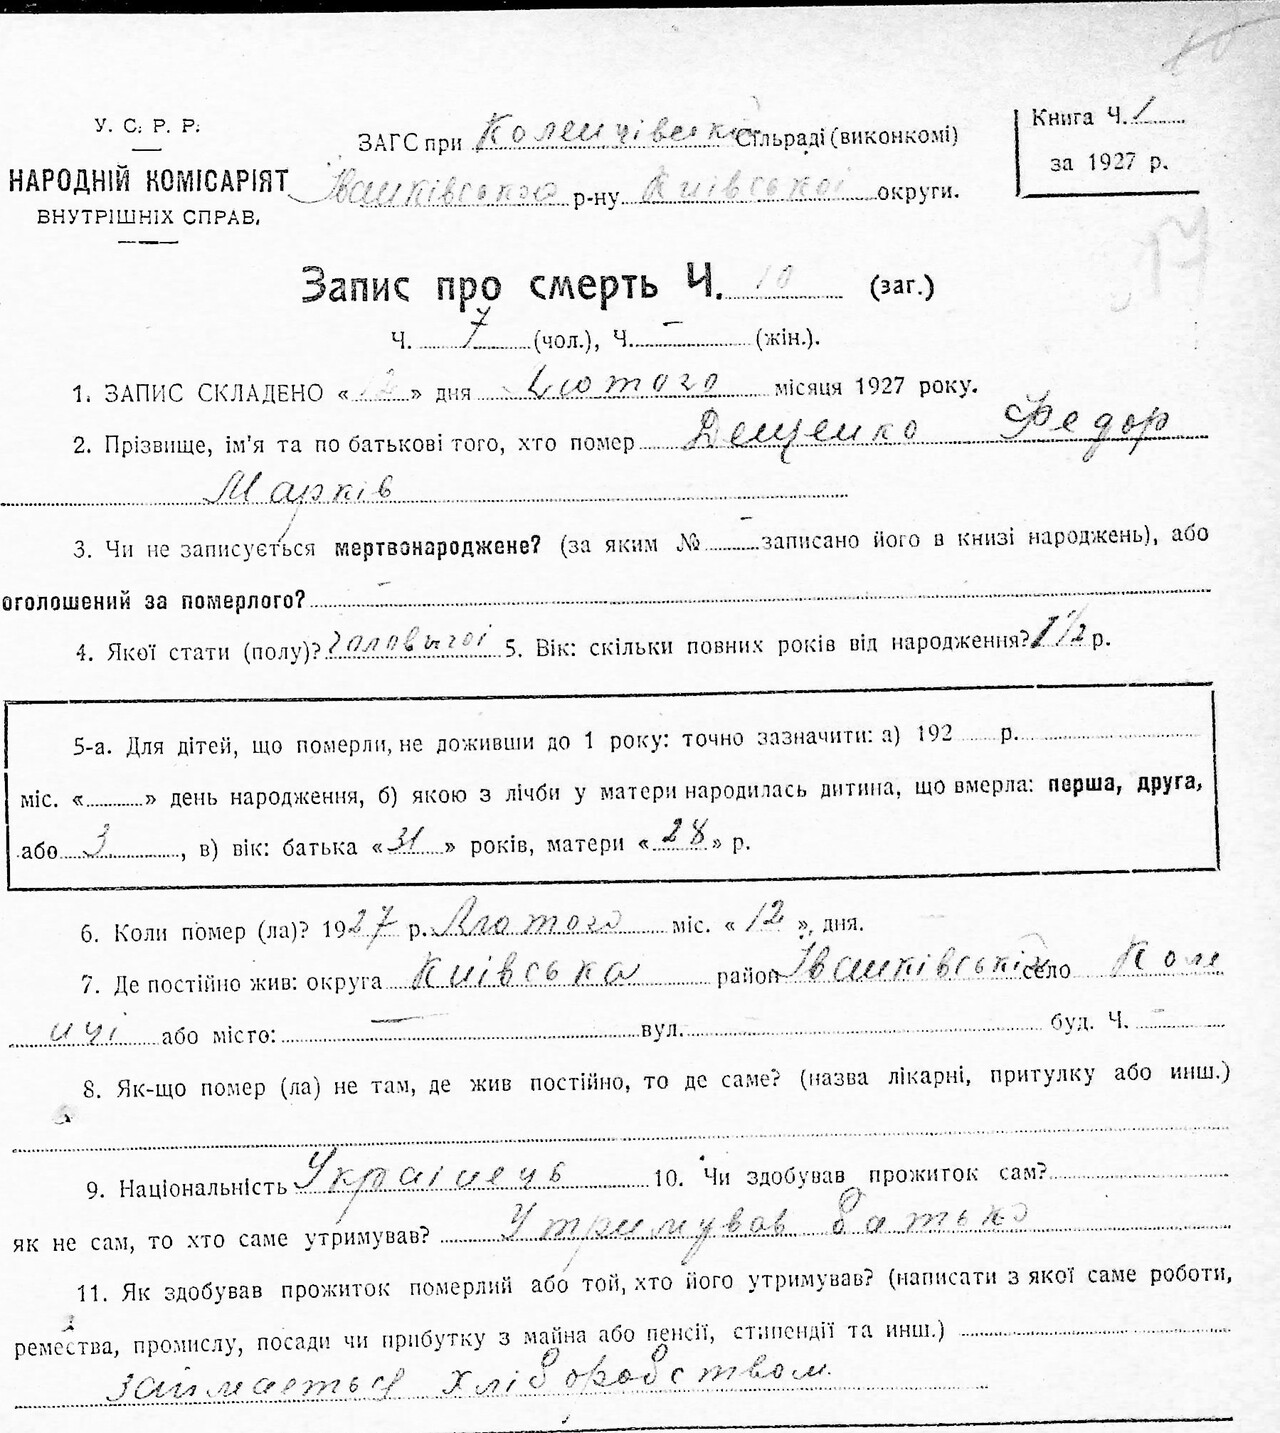 У. С. Р. Р.
НАРОДНІЙ КОМІСАРІЯТ
ВНУТРІШНІХ СПРАВ.
ЗАГС при Коленцівській Сільраді (виконкомі)
Іванківського р-ну Київської округи.
Книга Ч. 1
за 1927 р.
17
Запис про смерть Ч. 10 (заг.)
Ч. 7 (чол.), Ч. — (жін.).
1. ЗАПИС СКЛАДЕНО « 12 » дня Лютого місяця 1927 року.
2. Прізвище, ім'я та по батькові того, хто помер Дещенко Федор
Марків
3. Чи не записується мертвонароджене? (за яким № — записано його в книзі народжень), або
оголошений за померлого? —
4. Якої стати (полу)? чоловычоі 5. Вік: скільки повних років від народження? 1 1/2 р.
5-а. Для дітей, що померли, не доживши до 1 року: точно зазначити: а) 192 р.
міс. « » день народження, б) якою з лічби у матери народилась дитина, що вмерла: перша, друга,
або 3, в) вік: батька « 31 » років, матери « 28 » р.
6. Коли помер (ла)? 1927 р. Лютого міс. « 12 » дня.
7. Де постійно жив: округа Київська район Іванківській село Коле
нці або місто: — вул. буд. Ч. —
8. Як-що помер (ла) не там, де жив постійно, то де саме? (назва лікарні, притулку або инш.)
9. Національність Украінець 10. Чи здобував прожиток сам?
як не сам, то хто саме утримував? Утримував батько
11. Як здобував прожиток померлий або той, хто його утримував? (написати з якої саме роботи,
ремества, промислу, посади чи прибутку з майна або пенсії, стипендії та инш.)
займаеться хліборобством